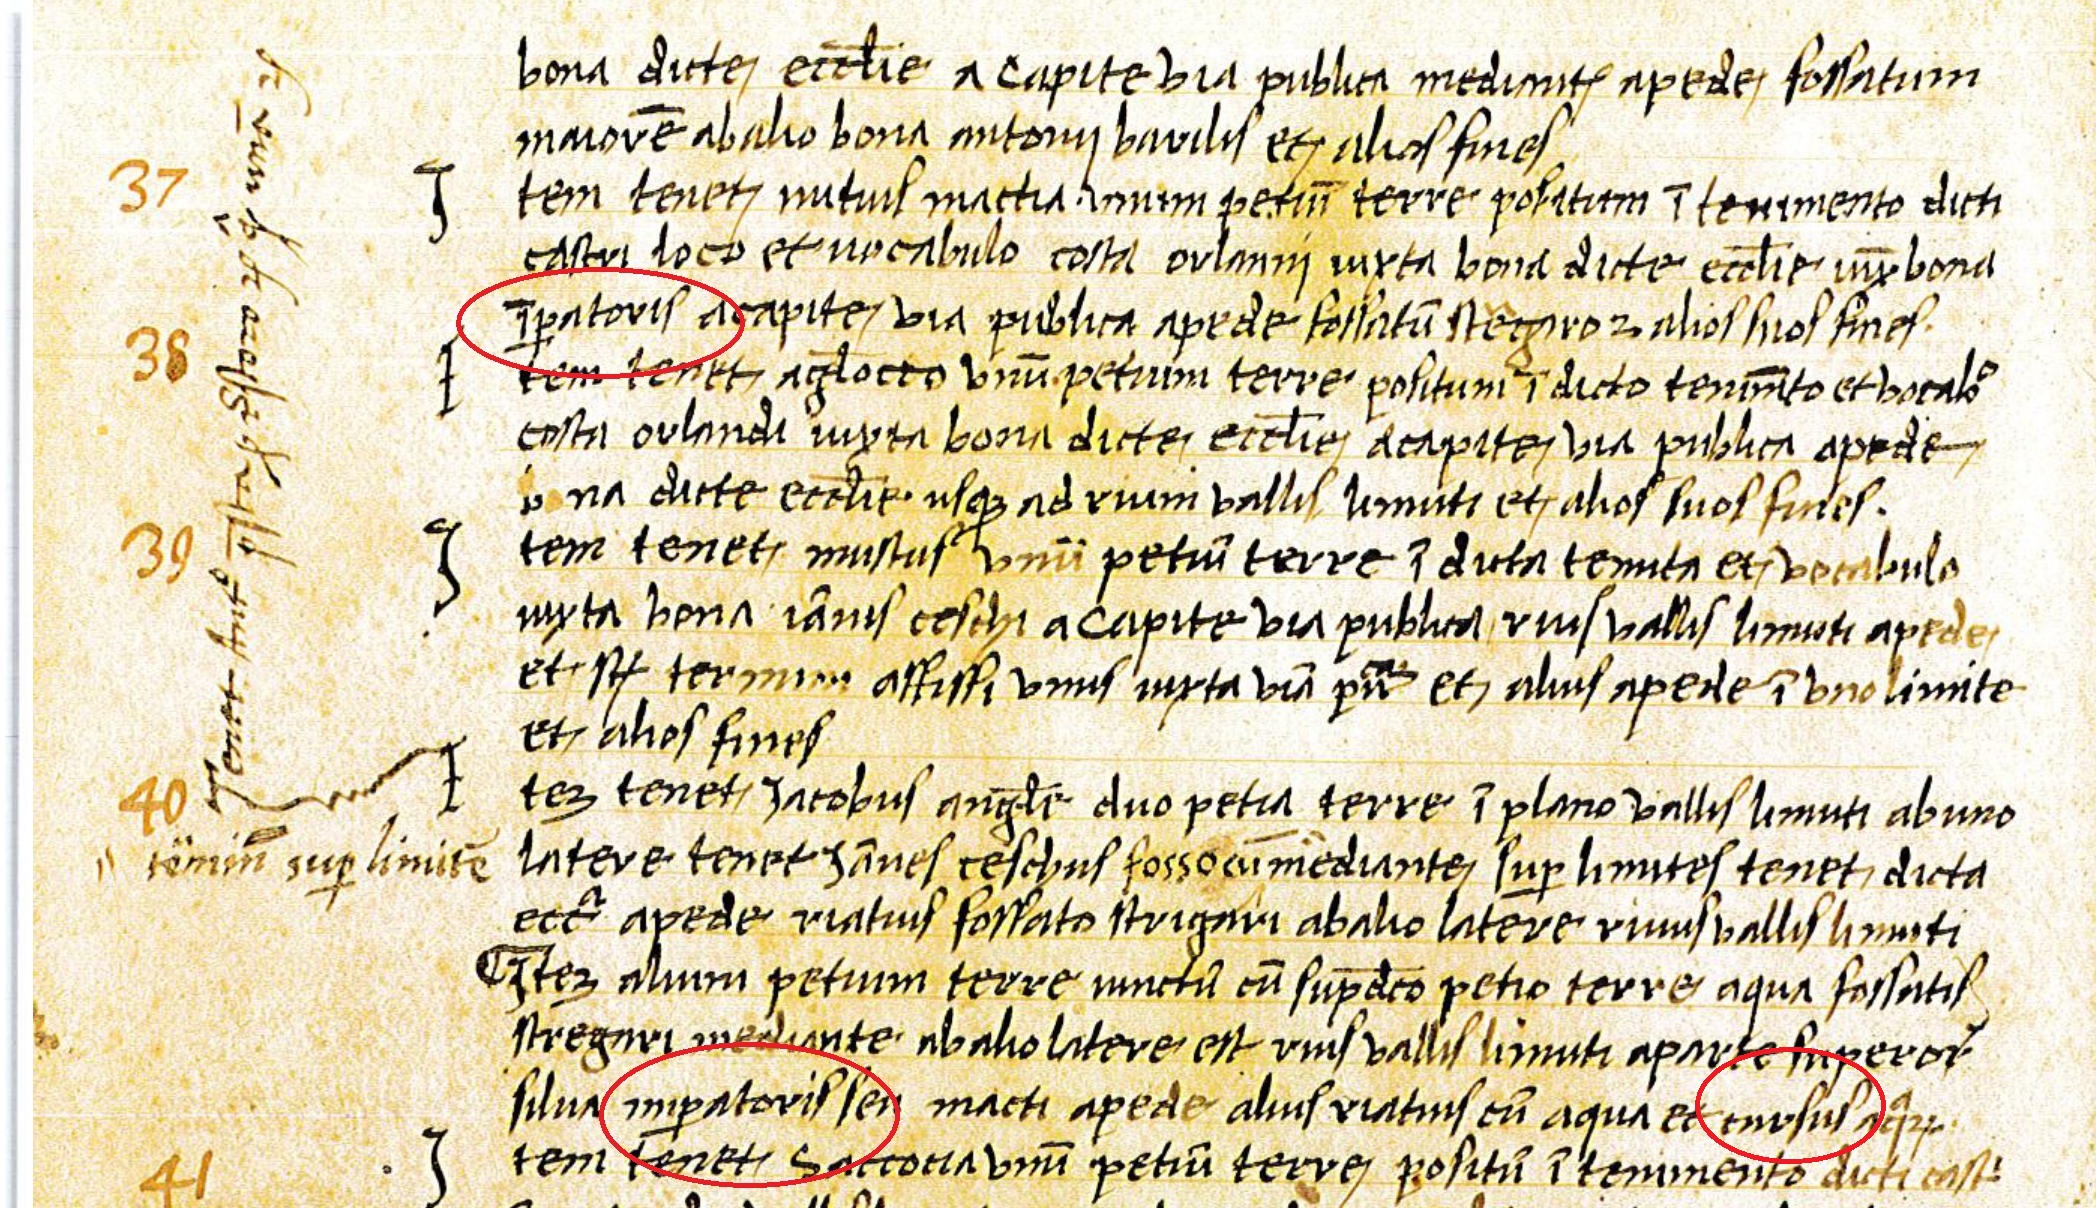 bona dicte ecclie a capite via publica mediante apede fossatum
maiorē abalio bona antonij barilis et alios fines
37 Item tenet nutius mactia unum petiū terre positum ī tenimento dicti
castri loco et vocabulo costa orlanni iuxta bona dicte ecclie iux bona
īpatoris acapite via publica apede fossatū stregaro ꝫ alios suos fines.
38 Item tenet aglocto vnū petium terre positum ī dicto tenimto et vocalo
costa orlandi iuxta bona dicte ecclie acapite via publica apede
bona dicte ecclie usqꝫ ad rium vallis limiti et alios suos fines.
39 Item tenet mustus vnū petiū terre ī dicta tenuta et vocabulo
iuxta bona iānis ceschi a capite via publica rius vallis limiti apede
et st termini affissi vnus iuxta viā pca et alius apede ī uno limite
et alios fines
40 Iteꝫ tenet Jacobus angli duo petia terre ī plano vallis limiti abuno
termin sup limite
latere tenet Jānes ceschus fosso mediante sup limites tenet dicta
ecca apede riatus fossato strigari abalio latere riuus vallis limiti
Iteꝫ alium petium terre iunctū cū supdco petio terre aqua fossatis
stregari mediante abalio latere est rius vallis limiti aparte superor
silua imꝑatoris seu macti apede alius riatus cū aqua et cursus
41 Item tenet Saccocia vnū petiū terre positū ī tenimento dicti castri